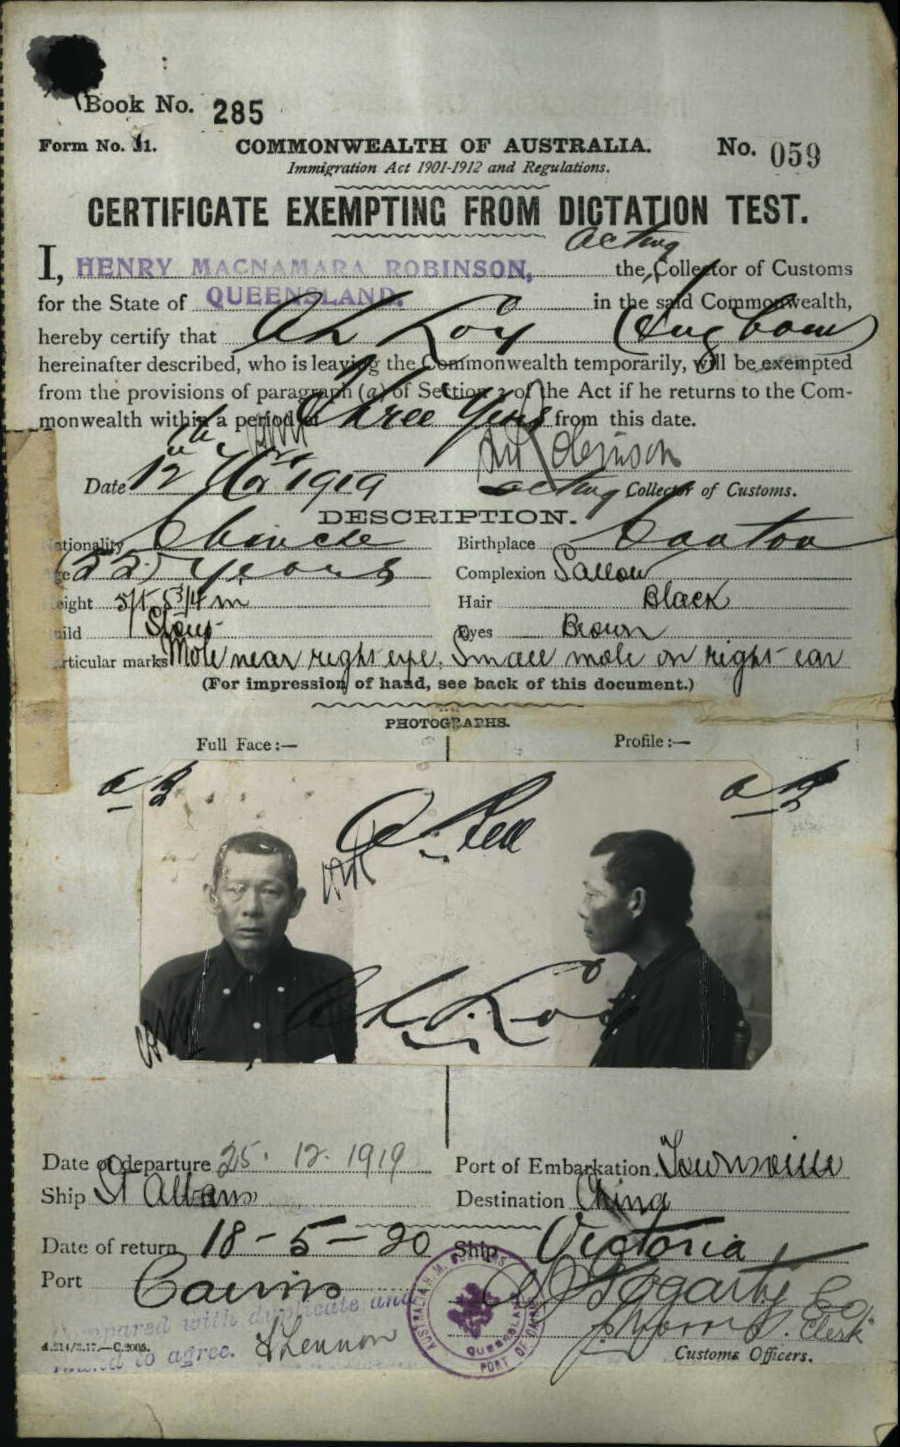 Book No. 285
Form No. 11. COMMONWEALTH OF AUSTRALIA. No. 059
Immigration Act 1901-1912 and Regulations.
CERTIFICATE EXEMPTING FROM DICTATION TEST.
acting
I, HENRY MACNAMARA ROBINSON, the Collector of Customs
for the State of QUEENSLAND. in the said Commonwealth,
hereby certify that Ah Koy
hereinafter described, who is leaving the Commonwealth temporarily, will be exempted
from the provisions of paragraph (a) of Section 3 of the Act if he returns to the Com-
monwealth within a period of Three Years from this date.
Robinson
Date 12th 1919 acting Collector of Customs.
DESCRIPTION.
Nationality Chinese Birthplace Canton
Age 52 years Complexion Sallow
Height 5ft 5 3/4 in Hair Black
Build Stout Eyes Brown
Particular marks Mole near right eye. Small mole on right ear
(For impression of hand, see back of this document.)
PHOTOGRAPHS.
Full Face:— Profile:—
Ah Koy
Date of departure 25. 12. 1919 Port of Embarkation Townsville
Ship St Albans Destination China
Date of return 18-5-20 Ship Victoria
Port Cairns Fogarty
Compared with duplicate and
found to agree. Lennon Clerk
Customs Officers.
QUEENSLAND